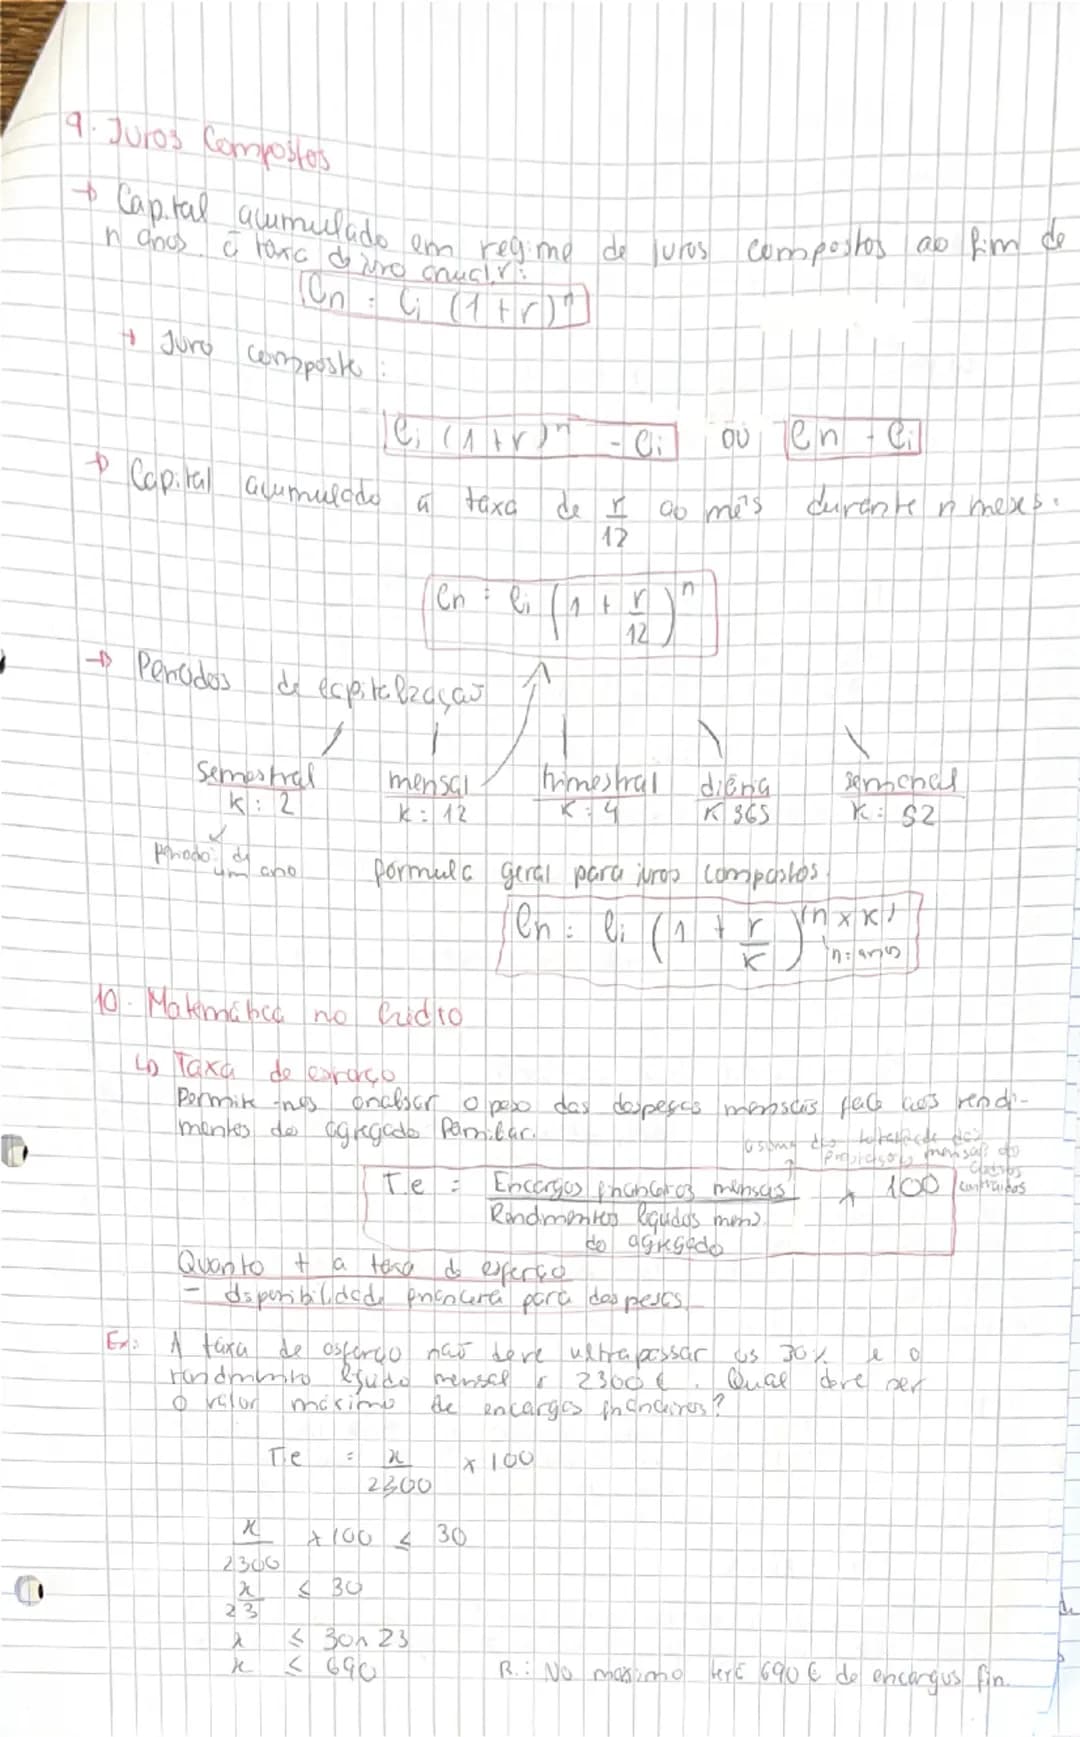 9. Juros Compostos
→ Capital acumulado em regime de juros compostos ao fim de
n anos, à taxa de juro anual r:
Cn = Ci (1+r)^n
→ Juro composto:
Ci (1+r)^n - Ci ou Cn - Ci
→ Capital acumulado à taxa de r/12 ao mês durante n meses:
Cn = Ci (1 + r/12)^n
→ Períodos de capitalização
semestral mensal trimestral diária semanal
k: 2 k: 12 k: 4 K 365 K: 52
período: de um ano
fórmula geral para juros compostos
Cn = Ci (1 + r/K)^(n x K)
n: anos
10. Matemática no Crédito
↳ Taxa de esforço
Permite-nos analisar o peso das despesas mensais face aos rendi-
mentos do agregado familiar.
soma da totalidade das
prestações mensais do
contraídos
T.e = Encargos financeiros mensais / Rendimentos líquidos mens. do agregado x 100
Quanto + a taxa de esforço
- disponibilidade financeira para despesas
Ex: A taxa de esforço não deve ultrapassar os 30% e o
rendimento líquido mensal é 2300€. Qual deve ser
o valor máximo de encargos financeiros?
T.e = x/2300 x 100
x/2300 x 100 ≤ 30
x/23 ≤ 30
x ≤ 30 x 23
x ≤ 690
R.: No maximo terá 690€ de encargos fin.